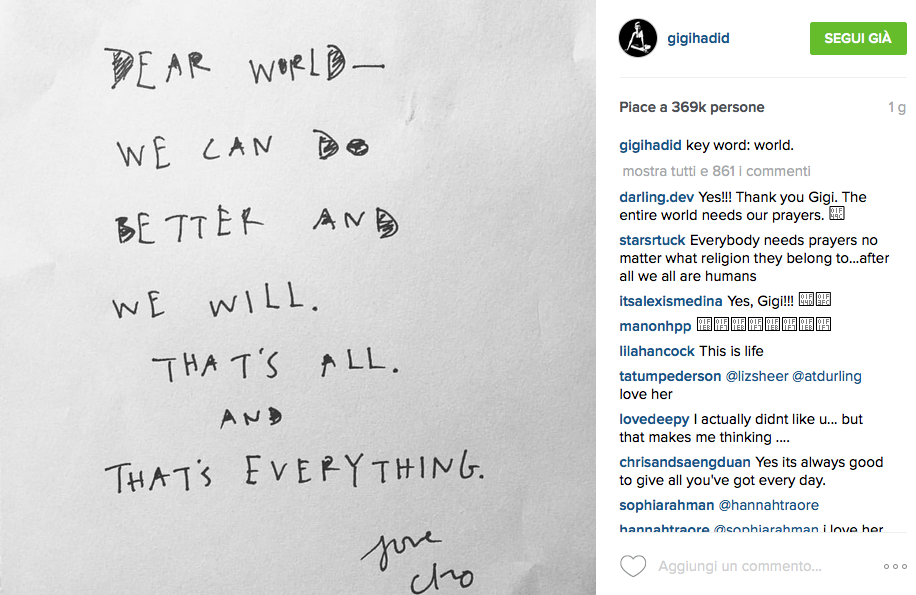 DEAR WORLD—
WE CAN DO
BETTER AND
WE WILL.
THAT'S ALL.
AND
THAT'S EVERYTHING.
love
cleo
gigihadid
SEGUI GIÀ
Piace a 369k persone
1 g
gigihadid key word: world.
mostra tutti e 861 i commenti
darling.dev Yes!!! Thank you Gigi. The
entire world needs our prayers.
starsrtuck Everybody needs prayers no
matter what religion they belong to...after
all we all are humans
itsalexismedina Yes, Gigi!!!
manonhpp
lilahancock This is life
tatumpederson @lizsheer @atdurling
love her
lovedeepy I actually didnt like u... but
that makes me thinking ....
chrisandsaengduan Yes its always good
to give all you've got every day.
sophiarahman @hannahtraore
hannahtraore @sophiarahman i love her
Aggiungi un commento...